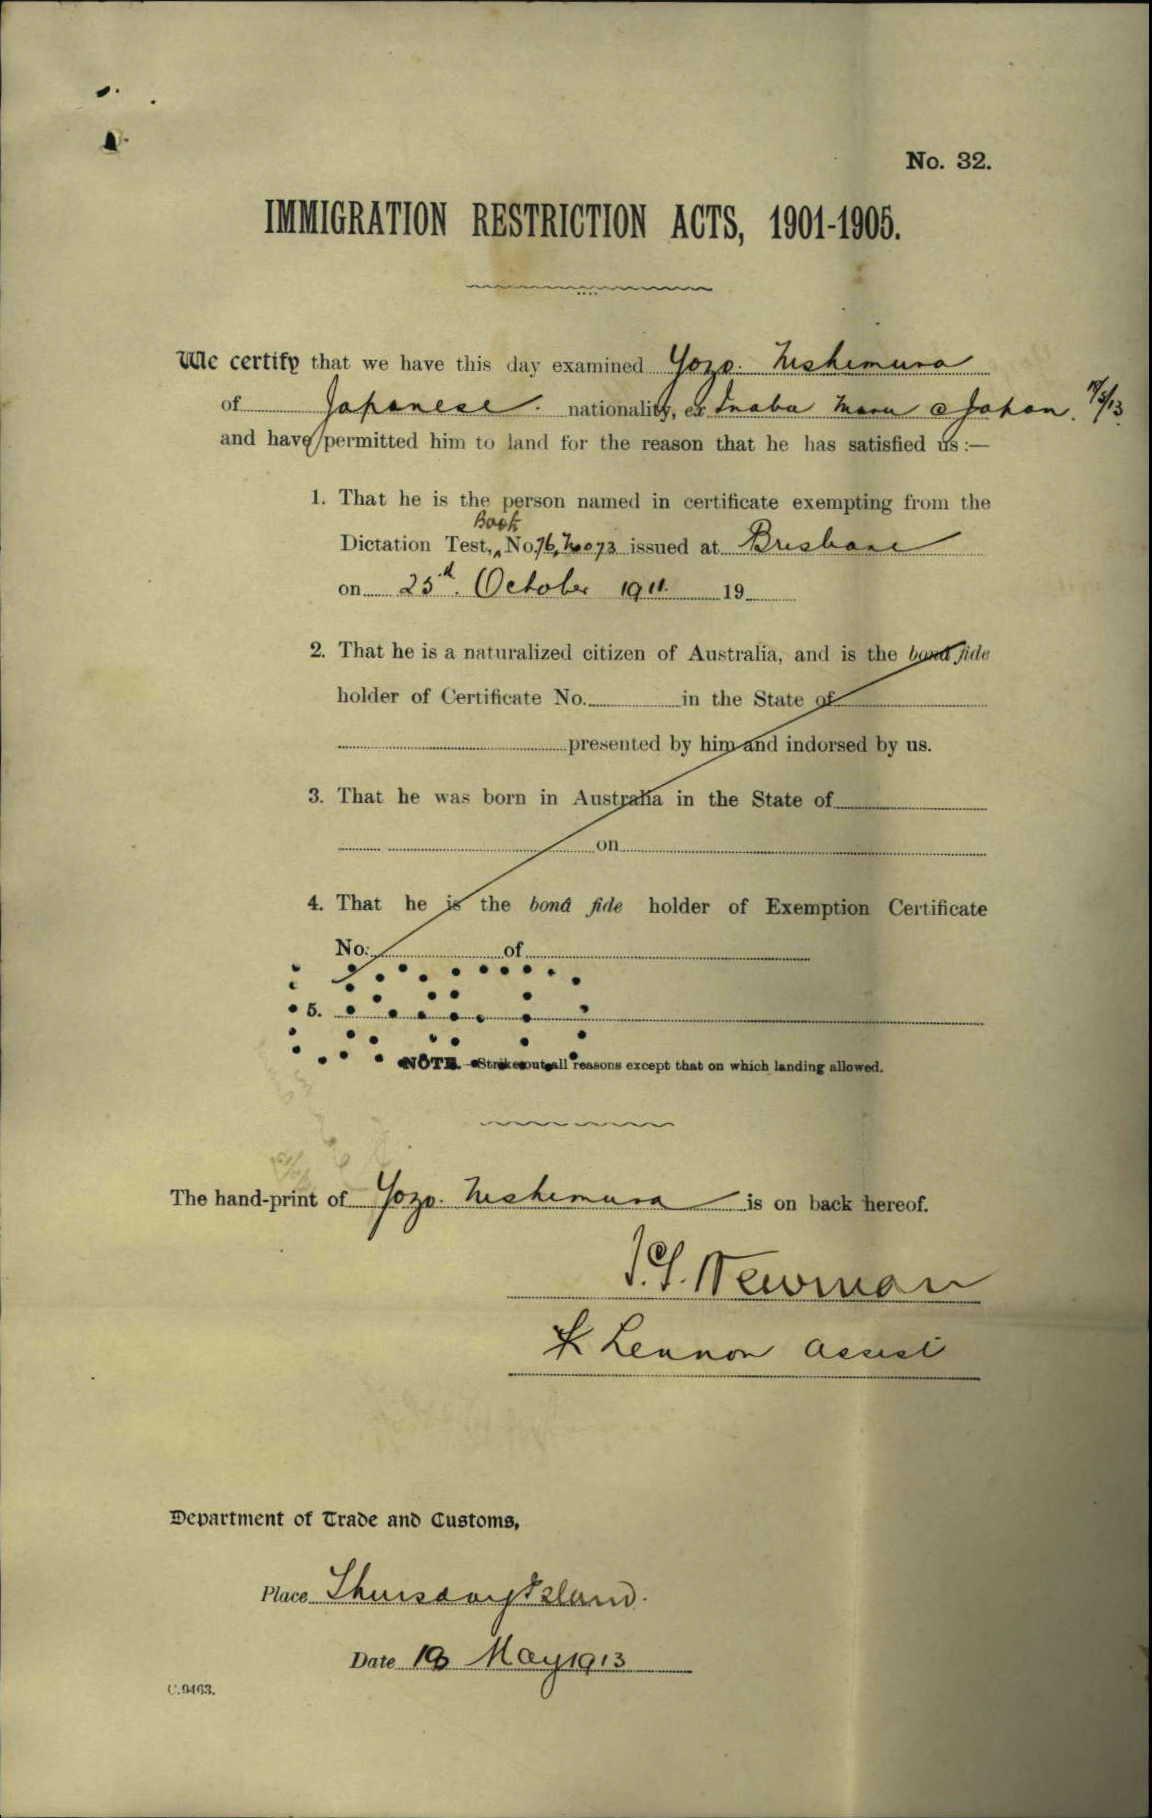 No. 32.
IMMIGRATION RESTRICTION ACTS, 1901-1905.
We certify that we have this day examined Yozo. Nishimura
of Japanese. nationality, ex Inaba Maru @ Japan.
and have permitted him to land for the reason that he has satisfied us :—
1. That he is the person named in certificate exempting from the
Book
Dictation Test, No. 76, No 73 issued at Brisbane
on 25th. October 1911. 19
2. That he is a naturalized citizen of Australia, and is the bonâ fide
holder of Certificate No. in the State of
presented by him and indorsed by us.
3. That he was born in Australia in the State of
on
4. That he is the bonâ fide holder of Exemption Certificate
No. of
5.
NOTE.—Strike out all reasons except that on which landing allowed.
The hand-print of Yozo. Nishimura is on back hereof.
Newman
Lennon Assist
Department of Trade and Customs,
Place Thursday Island.
Date May 1913
C.9463.